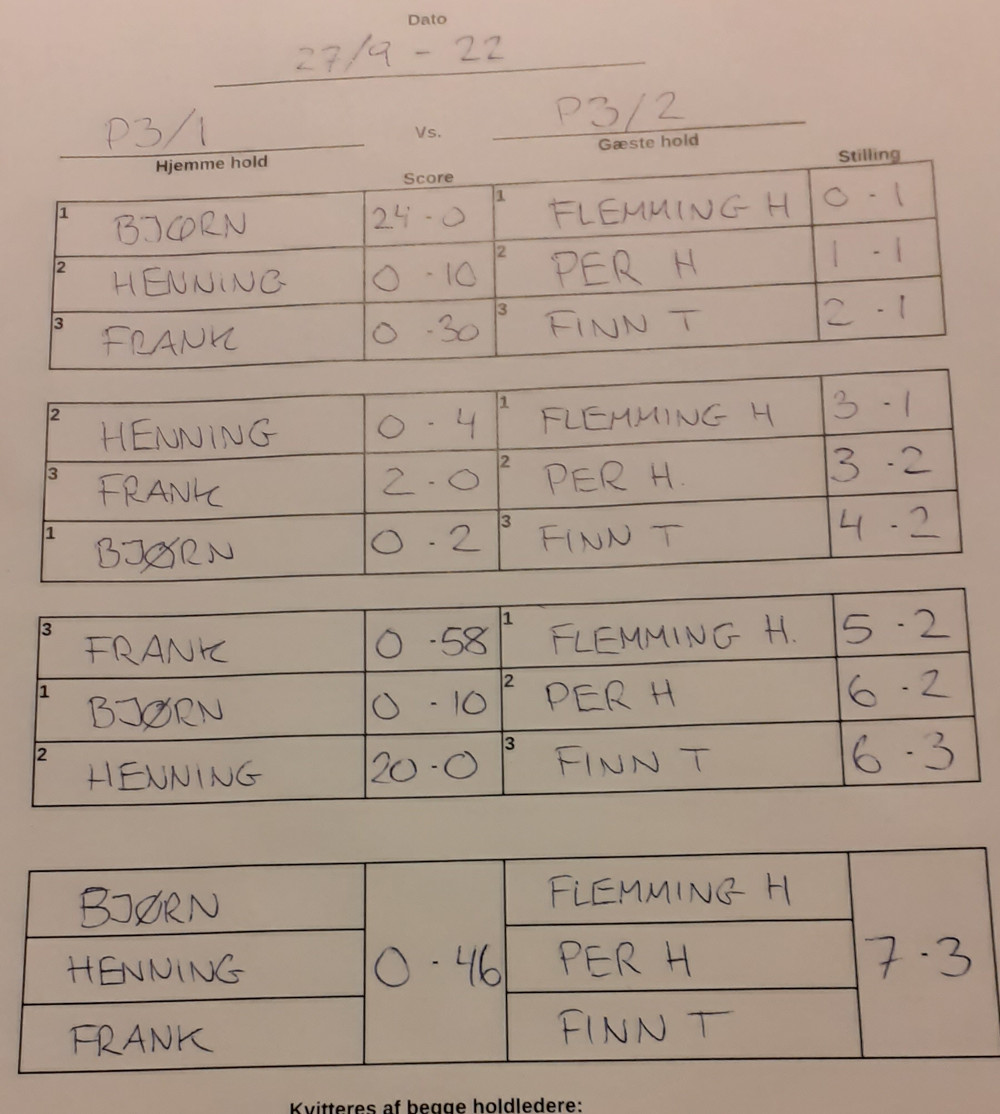 Dato
27/9 - 22
P3/1 Vs. P3/2
Hjemme hold Gæste hold
Score Stilling
1 BJØRN 24-0 1 FLEMMING H 0-1
2 HENNING 0-10 2 PER H 1-1
3 FRANK 0-30 3 FINN T 2-1
2 HENNING 0-4 1 FLEMMING H 3-1
3 FRANK 2-0 2 PER H. 3-2
1 BJØRN 0-2 3 FINN T 4-2
3 FRANK 0-58 1 FLEMMING H. 5-2
1 BJØRN 0-10 2 PER H 6-2
2 HENNING 20-0 3 FINN T 6-3
BJØRN FLEMMING H
HENNING 0-46 PER H 7-3
FRANK FINN T
Kvitteres af begge holdledere: